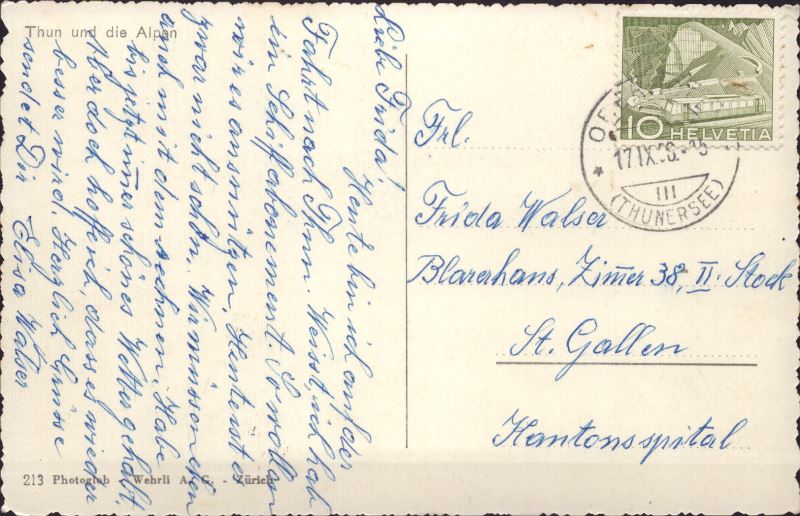 Thun und die Alpen
Liebe Frida!
Heute bin ich auf der
Fahrt nach Thun. Weisst, ich hab
ein Schifabonement. So wollen
wir es ausnützen, Heute ist es
zwar nicht schön. Wir müssen eben
auch mit dem rechnen. Habe
bis jetzt im̄er schönes Wetter gehabt.
Aber doch hoffe ich, dass es wieder
besser wird. Herzlich Grüsse
sendet Dir Elisa Walser
213 Photoglob - Wehrli A. G. - Zürich
10 HELVETIA
17.IX.
III
(THUNERSEE)
Frl.
Frida Walser
Blarerhaus, Zim̄er 38, II. Stock
St. Gallen
Kantonsspital